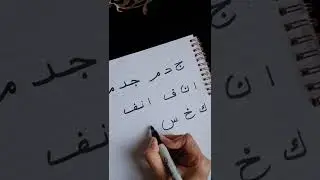 ج د م جدم
ا ن ف انف
ك خ س